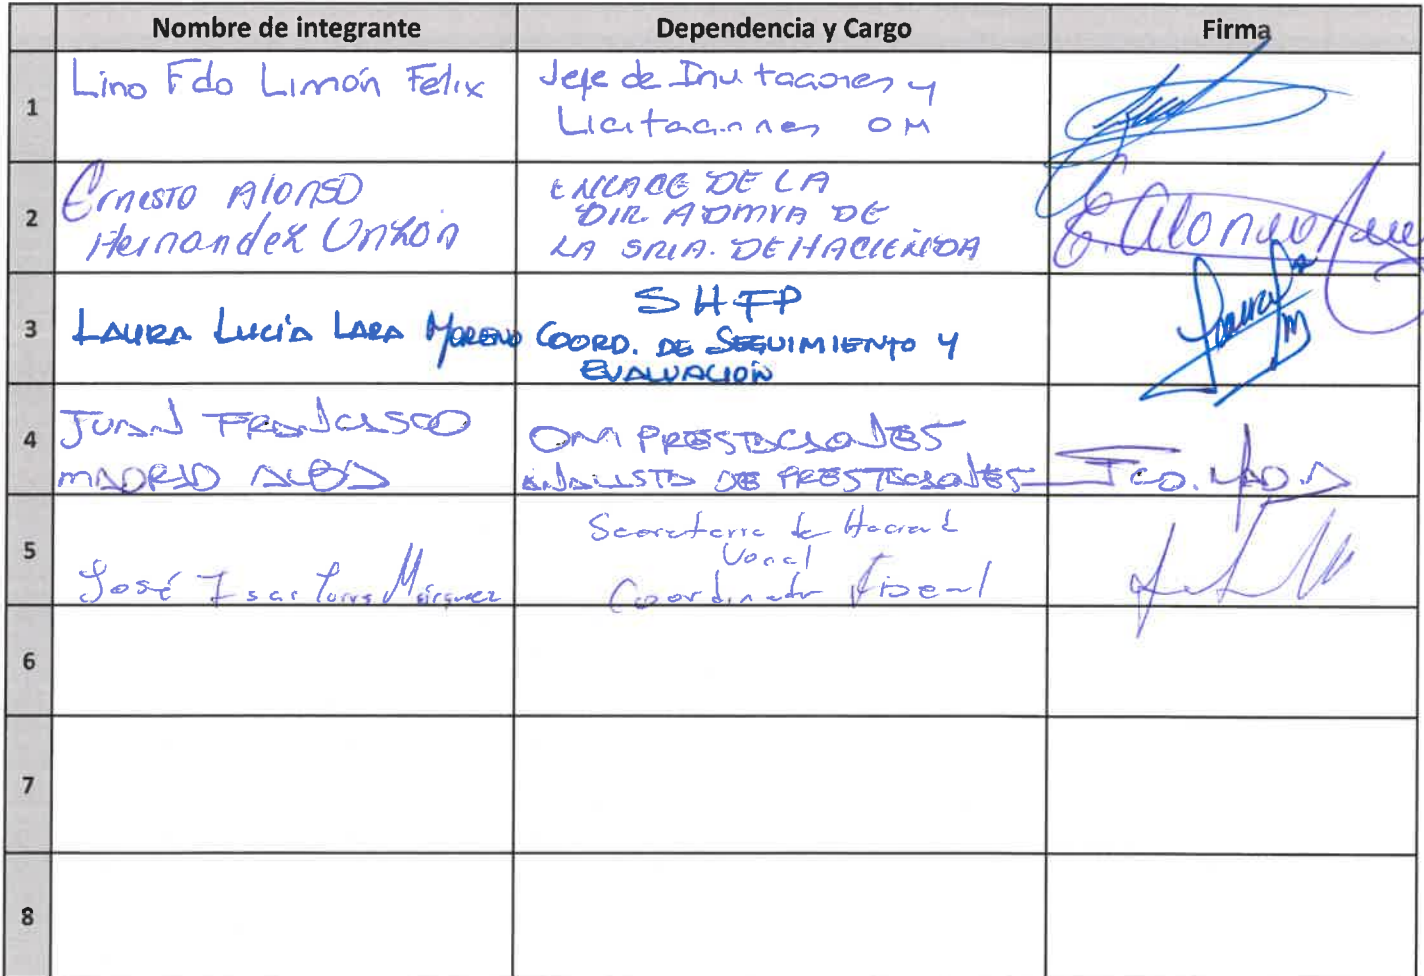 Nombre de integrante Dependencia y Cargo Firma
1
Lino Fdo Limón Felix
Jefe de Invitaciones y
Licitaciones OM
2
Ernesto Alonso
Hernandez
ENLACE DE LA
DIR. ADMVA DE
LA SRIA. DE HACIENDA
E. Alonso
3
LAURA LUCÍA LARA MORENO
SHFP
COORD. DE SEGUIMIENTO Y
EVALUACIÓN
4
JUAN FRANCISCO
MADRID ALBA
OM PRESTACIONES
ANALISTA DE PRESTACIONES
FCO. MAD. A
5
José Isai Torres Márquez
Secretaria de Haciend
Vocal
Coordinador Fiscal
6
7
8